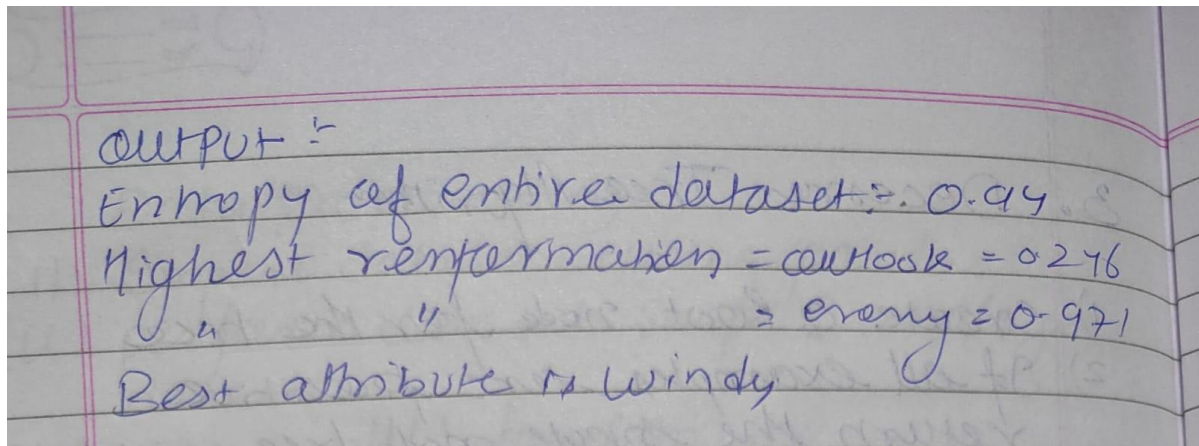 output :-
Entropy of entire dataset :- 0.94
Highest = outlook = 0.246
" " = = 0.971
Best attribute is windy